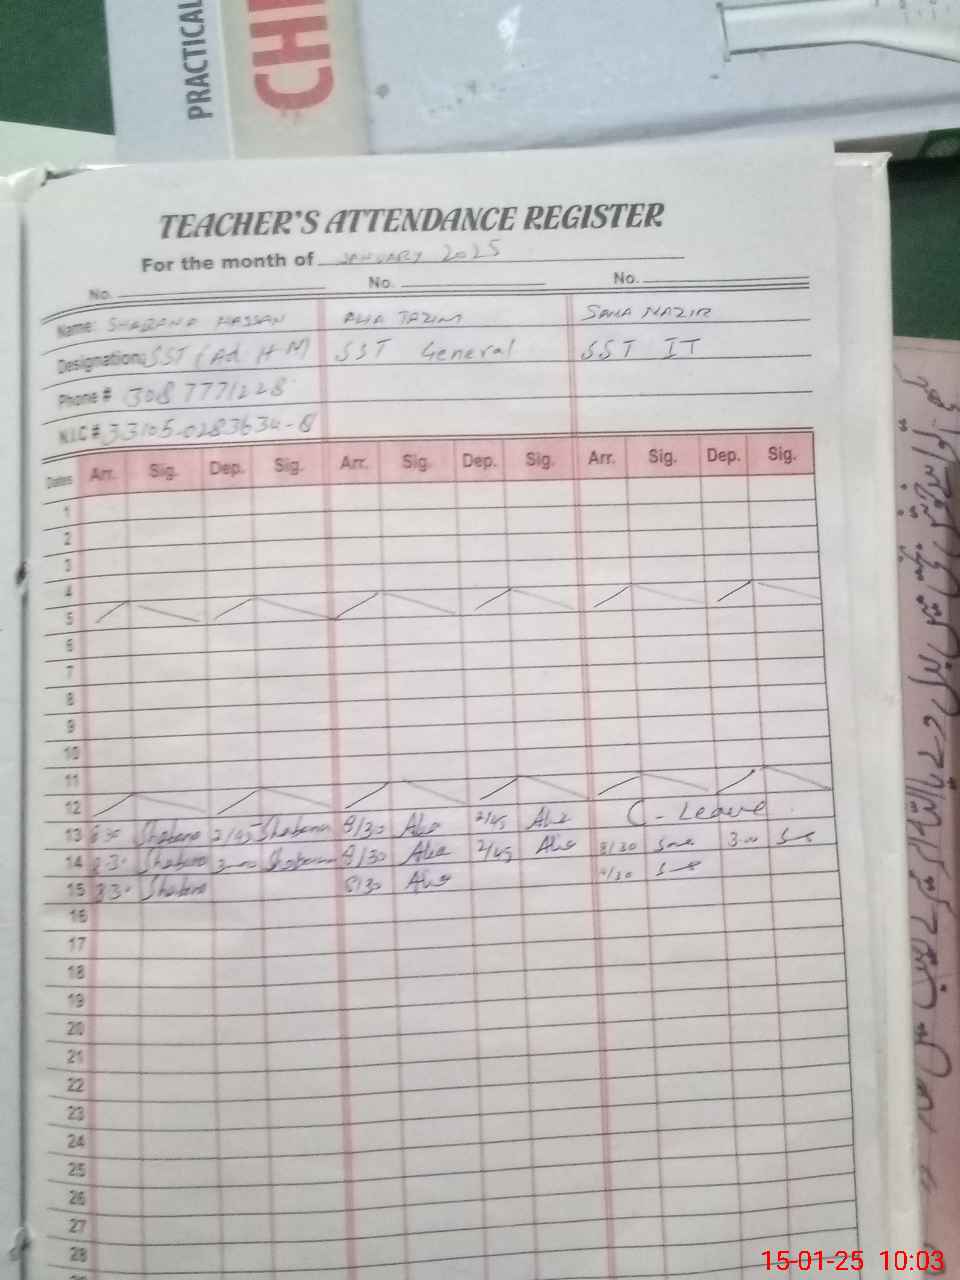 PRACTICAL
CHE
TEACHER'S ATTENDANCE REGISTER
For the month of JANUARY 2025
No. No. No.
Name: SHABANA HASSAN ALIA TAZIM SANA NAZIR
Designation: SST (Ad H M) SST General SST IT
Phone # 0308 7771228
N.I.C # 33105-0283634-8
Dates Arr. Sig. Dep. Sig. Arr. Sig. Dep. Sig. Arr. Sig. Dep. Sig.
1
2
3
4
5
6
7
8
9
10
11
12
13 8:30 Shabana 2/45 Shabana 8/30 Alia 2/45 Alia C - Leave
14 8:30 Shabana 3:00 Shabana 8/30 Alia 2/45 Alia 8/30 Sana 3:00
15 8:30 Shabana 8/30 Alia 8/30
16
17
18
19
20
21
22
23
24
25
26
27
28
15-01-25 10:03